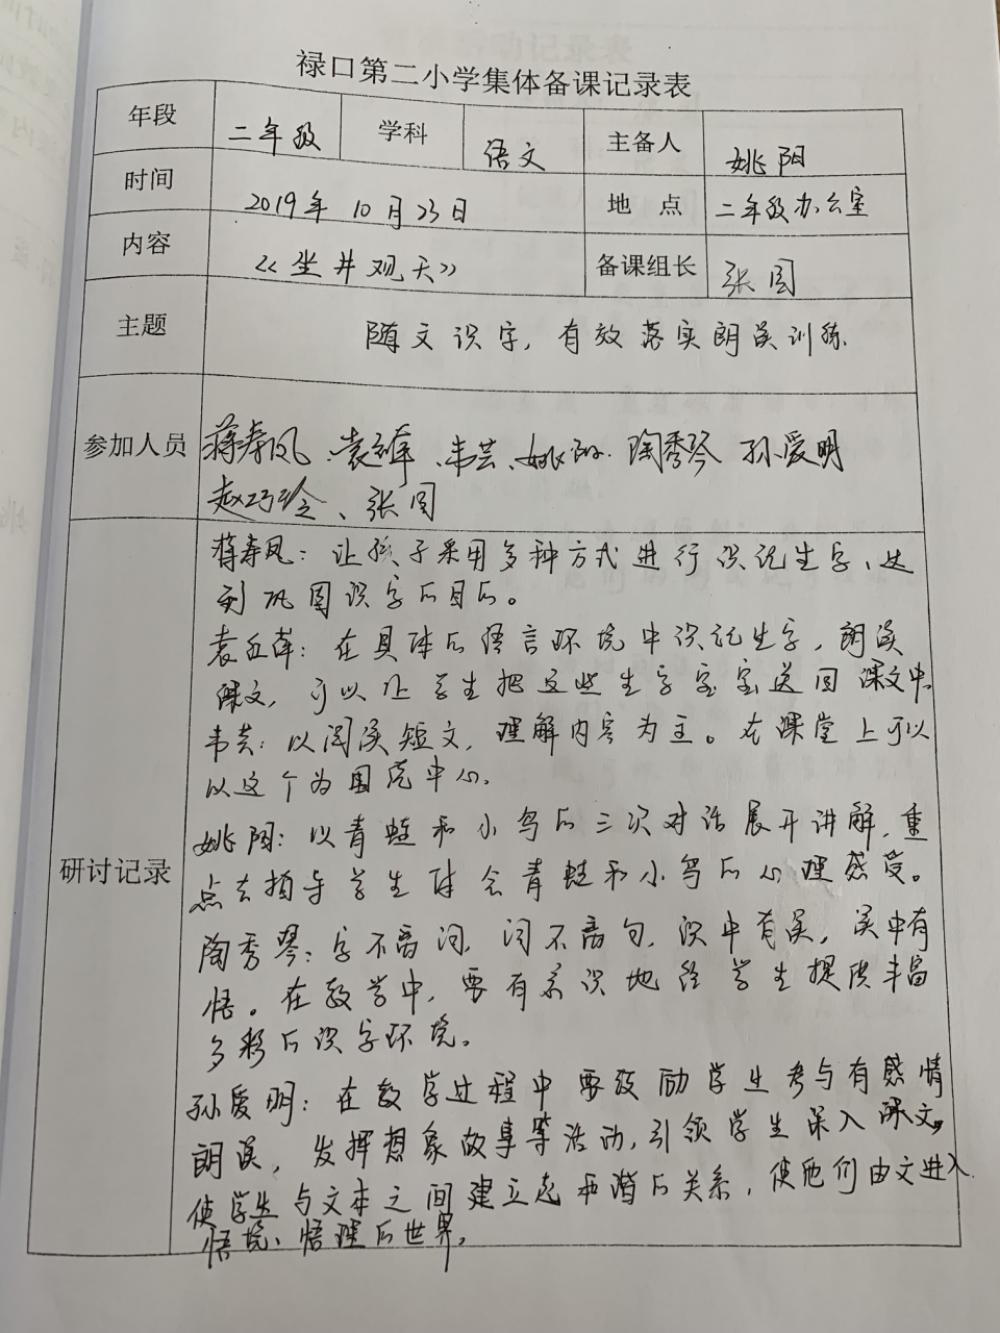 禄口第二小学集体备课记录表
年段 二年级 学科 语文 主备人 姚阳
时间 2019年10月23日 地点 二年级办公室
内容 《坐井观天》 备课组长 张园
主题 随文识字，有效落实朗读训练.
参加人员 蒋寿凤、袁 、韦芸、姚阳.陶秀琴 孙爱明
赵巧玲、张园
研讨记录
蒋寿凤：让孩子采用多种方式进行识记生字、达
到巩固识字的目的。
袁 ：在具体的语言环境中识记生字，朗读
课文，可以让学生把这些生字宝宝送回课文中.
韦芸：以阅读短文，理解内容为主。在课堂上可以
以这个为围绕中心.
姚阳：以青蛙和小鸟的三次对话展开讲解，重
点去指导学生体会青蛙和小鸟的心理感受。
陶秀琴：字不离词，词不离句，识中有读，读中有
悟。在教学中，要有意识地给学生提供丰富
多彩的识字环境。
孙爱明：在教学过程中要鼓励学生参与有感情
朗读，发挥想象故事等活动，引领学生深入课文，
使学生与文本之间建立起和谐的关系，使他们由文进入
悟境、悟理的世界。